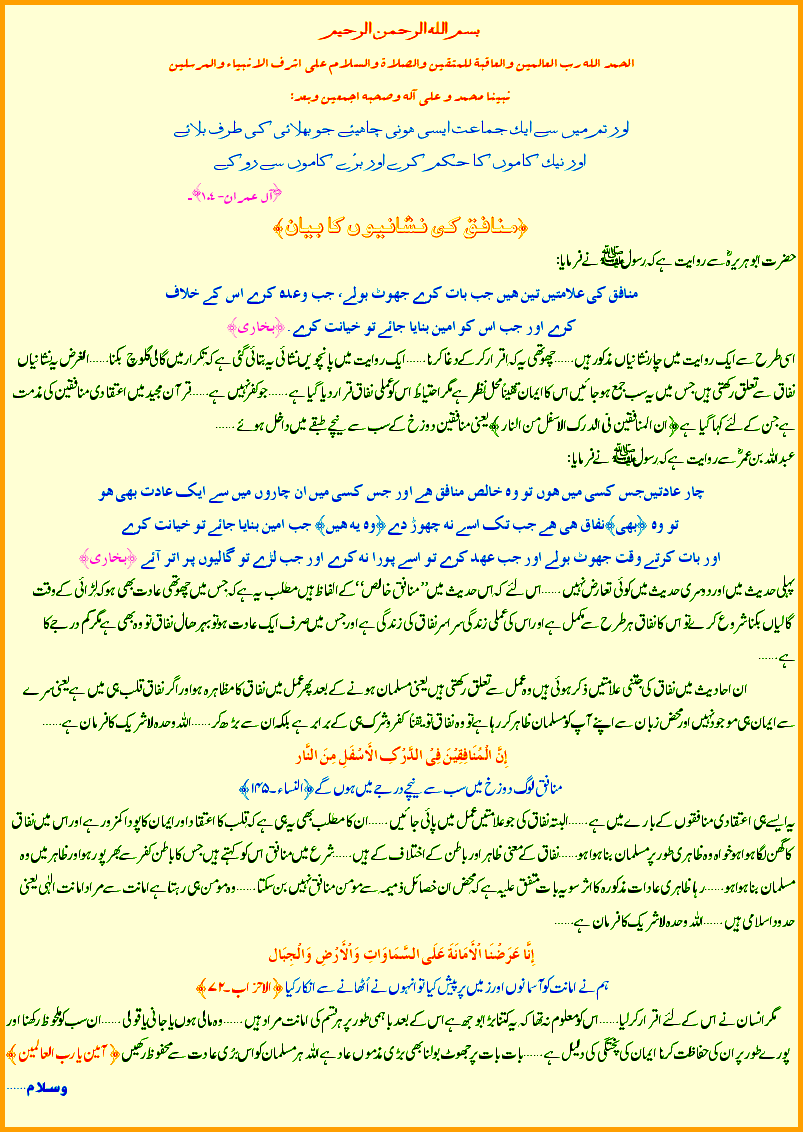 بسم الله الرحمن الرحیم
الحمد الله رب العالمین والعاقبة للمتقین والصلاة والسلام علی اشرف الانبیاء والمرسلین
نبینا محمد و علی آله وصحبه اجمعین وبعد:
اور تم میں سے ایک جماعت ایسی ہونی چاهیئے جو بھلائی کی طرف بلائے
اور نیک کاموں کا حکم کرے اور بڑے کاموں سے روکے
﴿آل عمران-۱۰٤﴾۔
﴿منافق کی نشانیوں کا بیان﴾
حضرت ابوہریرہؓ سے روایت ہے کہ رسول ﷺ نے فرمایا:
منافق کی علامتیں تین هیں جب بات کرے جھوٹ بولے، جب وعده کرے اس کے خلاف
کرے اور جب اس کو امین بنایا جائے تو خیانت کرے۔ ﴿بخاری﴾
اسی طرح سے ایک روایت میں چار نشانیاں مذکور ہیں......چھوتھی یہ کہ اقرار کرکے دغا کرنا......ایک روایت میں پانچویں نشانی یہ بتائی گئی ہے کہ تکرار میں گالی گلوچ بکنا......الغرض یہ نشانیاں
نفاق سے تعلق رکھتی ہیں جس میں یہ سب جمع ہوجائیں اس کا ایمان یقینًا محل نظر ہے مگر احتیاط اس کو عملی نفاق قرار دیا گیا ہے......جو کفر نہیں ہے.....قرآن مجید میں اعتقادی منافقین کی مذمت
ہے جن کے لئے کہا گیا ہے ﴿ان المنافقین فی الدرک الاسفل من النار﴾ یعنی منافقین دوزخ کے سب سے نیچے طبقے میں داخل ہوئے......
عبداللہ بن عمرؓ سے روایت ہے کہ رسول ﷺ نے فرمایا:
چار عادتیں جس کسی میں هوں تو وه خالص منافق هے اور جس کسی میں ان چاروں میں سے ایک عادت بھی هو
تو وه ﴿بھی﴾نفاق هی هے جب تک اسے نه چھوڑ دے ﴿وه یه هیں﴾ جب امین بنایا جائے تو خیانت کرے
اور بات کرتے وقت جھوٹ بولے اور جب عهد کرے تو اسے پورا نه کرے اور جب لڑے تو گالیوں پر اتر آئے ﴿بخاری﴾
پہلی حدیث میں اور دوسری حدیث میں کوئی تعارض نہیں......اس لئے کہ اس حدیث میں ’’منافق خالص‘‘ کے الفاظ ہیں مطلب یہ ہے کہ جس میں چھوتھی عادت بھی ہو کہ لڑائی کے وقت
گالیاں بکنا شروع کرے تو اس کا نفاق ہر طرح سے مکمل ہے اور اس کی عملی زندگی سراسر نفاق کی زندگی ہے اور جس میں صرف ایک عادت ہو تو بہرحال نفاق تو وہ بھی ہے مگر کم درجے کا
ہے......
ان احادیث میں نفاق کی جتنی علامتیں ذکر ہوئی ہیں وہ عمل سے تعلق رکھتی ہیں یعنی مسلمان ہونے کے بعد پھر عمل میں نفاق کا مظاہرہ ہو اور اگر نفاق قلب ہی میں ہے یعنی سرے
سے ایمان ہی موجود نہیں اور محض زبان سے اپنے آپ کو مسلمان ظاہر کر رہا ہے تو وہ نفاق تو یقینا کفر و شرک ہی کے برابر ہے بلکہ ان سے بڑھ کر......اللہ وحدہ لاشریک کا فرمان ہے......
اِنَّ الْمُنَافِقِیْنَ فِیْ الدَّرْکِ الْاَسْفَلِ مِنَ النَّارِ
منافق لوگ دوزخ میں سب سے نیچے درجے میں ہوں گے ﴿النساء۔۱۴۵﴾
یہ ایسے ہی اعتقادی منافقوں کے بارے میں ہے......البتہ نفاق کی جو علامتیں عمل میں پائی جائیں......ان کا مطلب بھی یہ ہی ہے کہ قلب کا اعتقاد اور ایمان کا پودا کمزور ہے اور اس میں نفاق
کا گھن لگا ہوا ہو خواہ وہ ظاہری طور پر مسلمان بنا ہوا ہو......نفاق کے معنی ظاہر اور باطن کے اختلاف کے ہیں......شرع میں منافق اس کو کہتے ہیں جس کا باطن کفر سے بھرپور ہو اور ظاہر میں وہ
مسلمان بنا ہوا ہو......رہا ظاہری عادات مذکورہ کا اثر سو یہ بات متفق علیہ ہے کہ محض ان خصائل ذمیمہ سے مومن منافق نہیں بن سکتا......وہ مومن ہی رہتا ہے امانت سے مراد امانت الٰہی یعنی
حدود اسلامی ہیں......اللہ وحدہ لاشریک کا فرمان ہے......
اِنَّا عَرَضْنَا الْأَمَانَةَ عَلَى السَّمَاوَاتِ وَالْأَرْضِ وَالْجِبَالِ
ہم نے امانت کو آسمانوں اور زمیں پر پیش کیا تو انہوں نے اُٹھانے سے انکار کیا ﴿الاحزاب۔۷۲﴾
مگر انسان نے اس کے لئے اقرار کر لیا......اس کو معلوم نہ تھا کہ یہ کتنا بڑا بوجھ ہے اس کے بعد باہمی طور پر ہر قسم کی امانت مراد ہیں......وہ مالی ہوں یا جانی یا قولی......ان سب کو ملحوظ رکھنا اور
پورے طور پر ان کی حفاظت کرنا ایمان کی پختگی کی دلیل ہے......بات بات پر جھوٹ بولنا بھی بڑی مذموم عاد ہے اللہ ہر مسلمان کو اس بڑی عادت سے محفوظ رکھیں ﴿آمین یا رب العالمین﴾
وسلام......